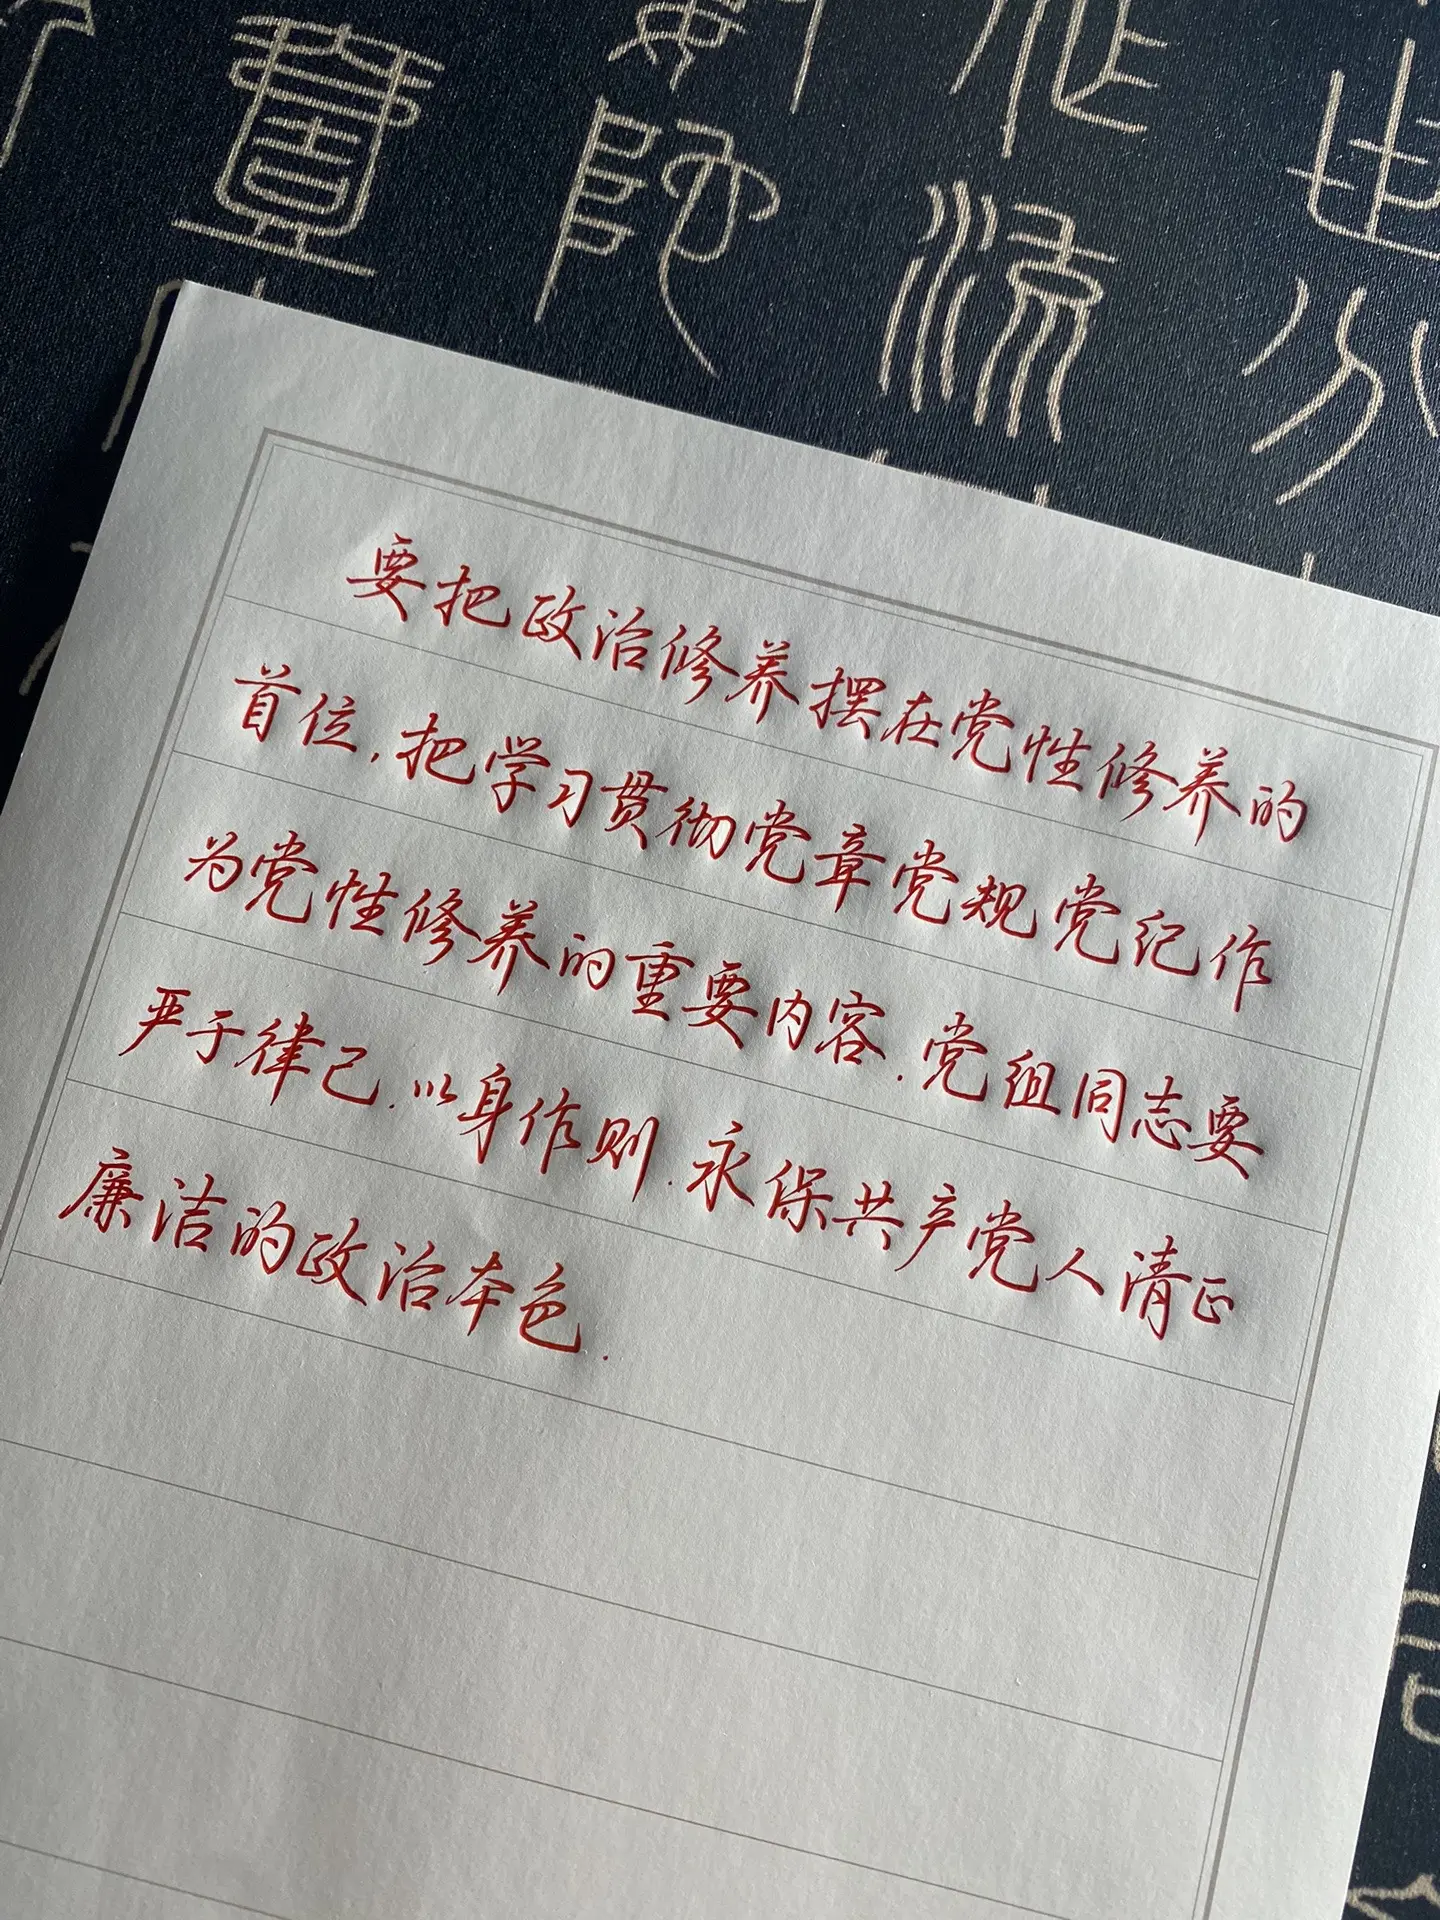 要把政治修养摆在党性修养的
首位,把学习贯彻党章党规党纪作
为党性修养的重要内容.党组同志要
严于律己.以身作则.永保共产党人清正
廉洁的政治本色.